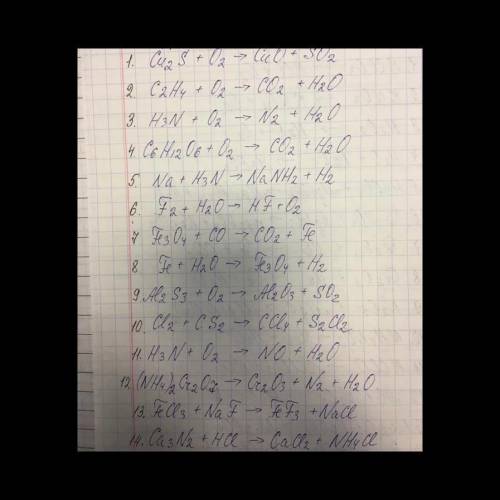 1. Cu2S + O2 → CuO + SO2
2. C2H4 + O2 → CO2 + H2O
3. H3N + O2 → N2 + H2O
4. C6H12O6 + O2 → CO2 + H2O
5. Na + H3N → NaNH2 + H2
6. F2 + H2O → HF + O2
7. Fe3O4 + CO → CO2 + Fe
8. Fe + H2O → Fe3O4 + H2
9. Al2S3 + O2 → Al2O3 + SO2
10. Cl2 + CS2 → CCl4 + S2Cl2
11. H3N + O2 → NO + H2O
12. (NH4)2Cr2O7 → Cr2O3 + N2 + H2O
13. FeCl3 + NaF → FeF3 + NaCl
14. Ca3N2 + HCl → CaCl2 + NH4Cl